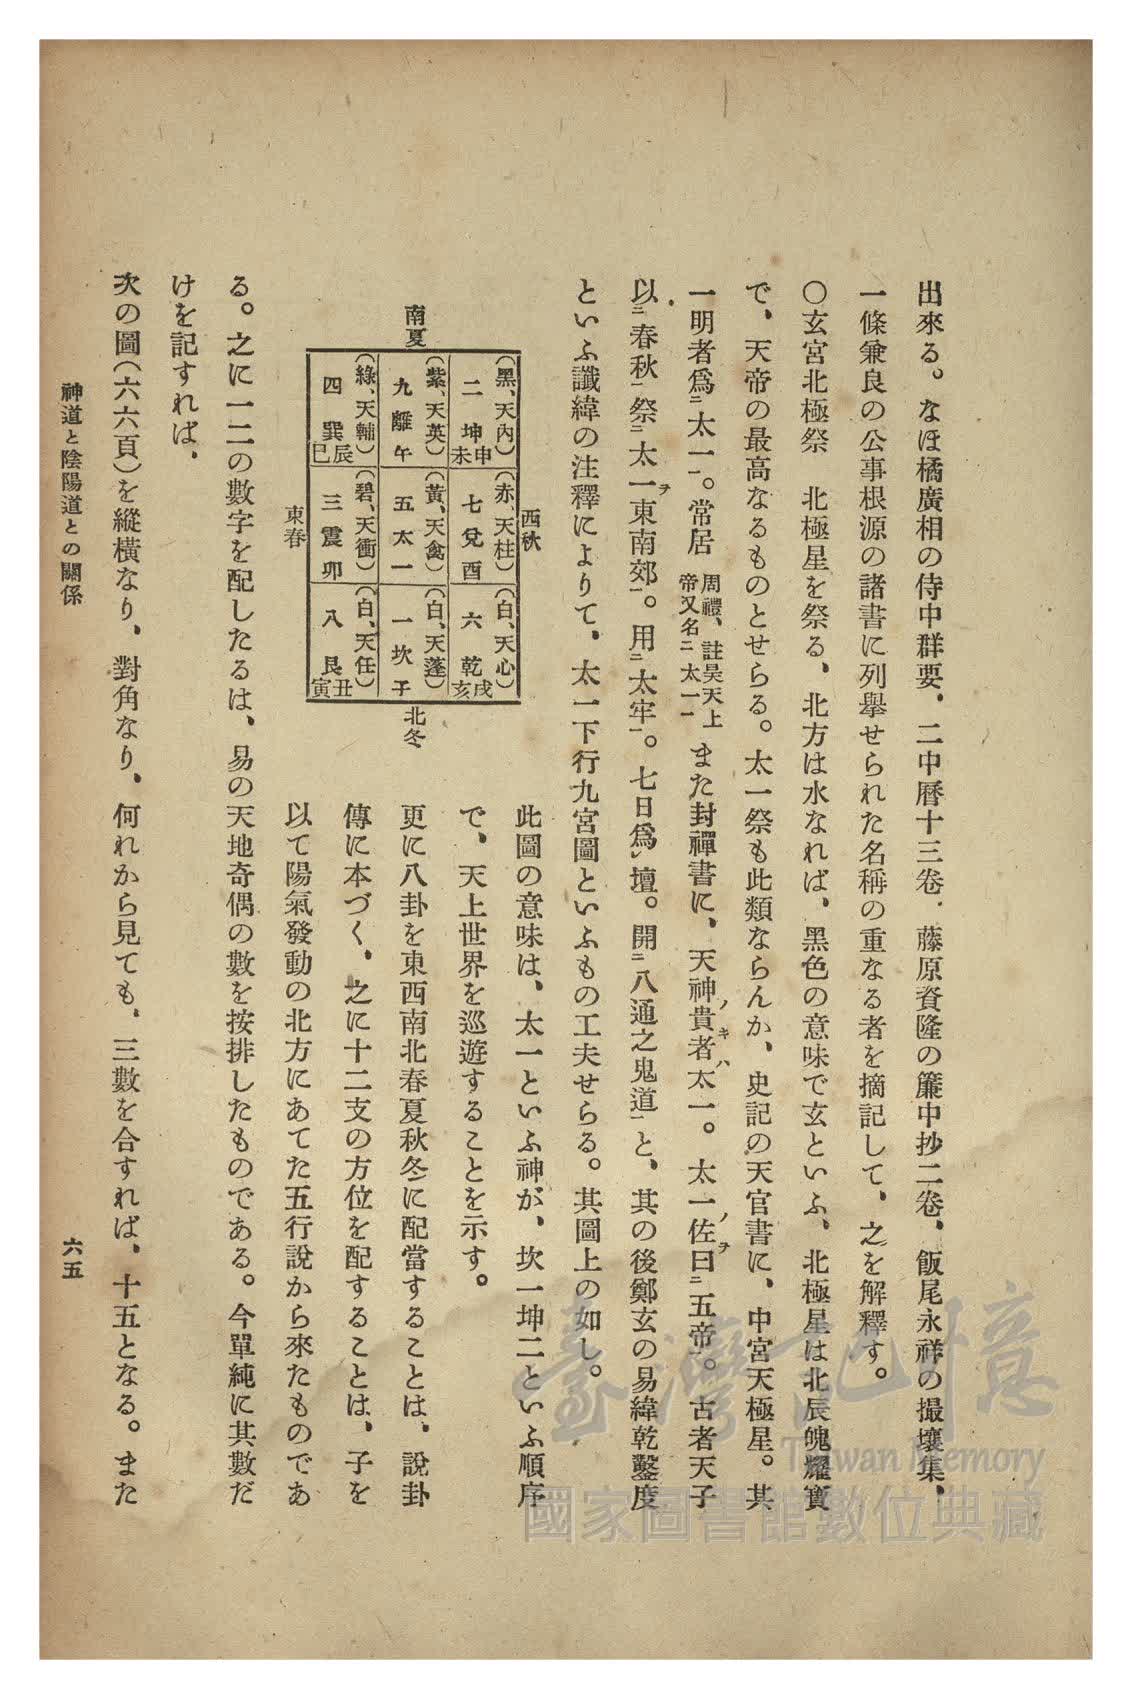 出來る。なほ橘廣相の侍中群要、二中曆十三卷、藤原資隆の簾中抄二卷、飯尾永祥の撮壤集、
一條兼良の公事根源の諸書に列擧せられた名稱の重なる者を摘記して、之を解釋す。
〇玄宮北極祭　北極星を祭る、北方は水なれば、黑色の意味で玄といふ、北極星は北辰魄耀寶
で、天帝の最高なるものとせらる。太一祭も此類ならんか、史記の天官書に、中宮天極星。其
一明者爲㆓太一㆒。常居
周禮、註昊天上
帝又名㆓太一㆒
また封禪書に、天神貴者太一。太一佐曰㆓五帝㆒。古者天子
ノキハ
ノヲ
以㆓春秋㆒祭㆓太一東南郊㆒。用㆓太牢㆒。七日爲㆑壇。開㆓八通之鬼道㆒と、其の後鄭玄の易緯乾鑿度
ヲ
といふ讖緯の注釋によりて、太一下行九宮圖といふもの工夫せらる。其圖上の如し。
西秋
南夏
東春
北冬
(黑、天內)
二　坤
未申
(赤、天柱)
七兌酉
(白、天心)
六　乾
亥戌
(紫、天英)
九離午
(黃、天禽)
五太一
(白、天蓬)
一坎子
(綠、天輔)
四　巽
巳辰
(碧、天衝)
三震卯
(白、天任)
八　艮
寅丑
此圖の意味は、太一といふ神が、坎一坤二といふ順序
で、天上世界を巡遊することを示す。
更に八卦を東西南北春夏秋冬に配當することは、說卦
傳に本づく、之に十二支の方位を配することは、子を
以て陽氣發動の北方にあてた五行說から來たものであ
る。之に一二の數字を配したるは、易の天地奇偶の數を按排したものである。今單純に其數だ
けを記すれば、
次の圖(六六頁)を縱橫なり、對角なり、何れから見ても、三數を合すれば、十五となる。また
神道と陰陽道との關係
六五
臺灣記憶
Taiwan Memory
國家圖書館數位典藏